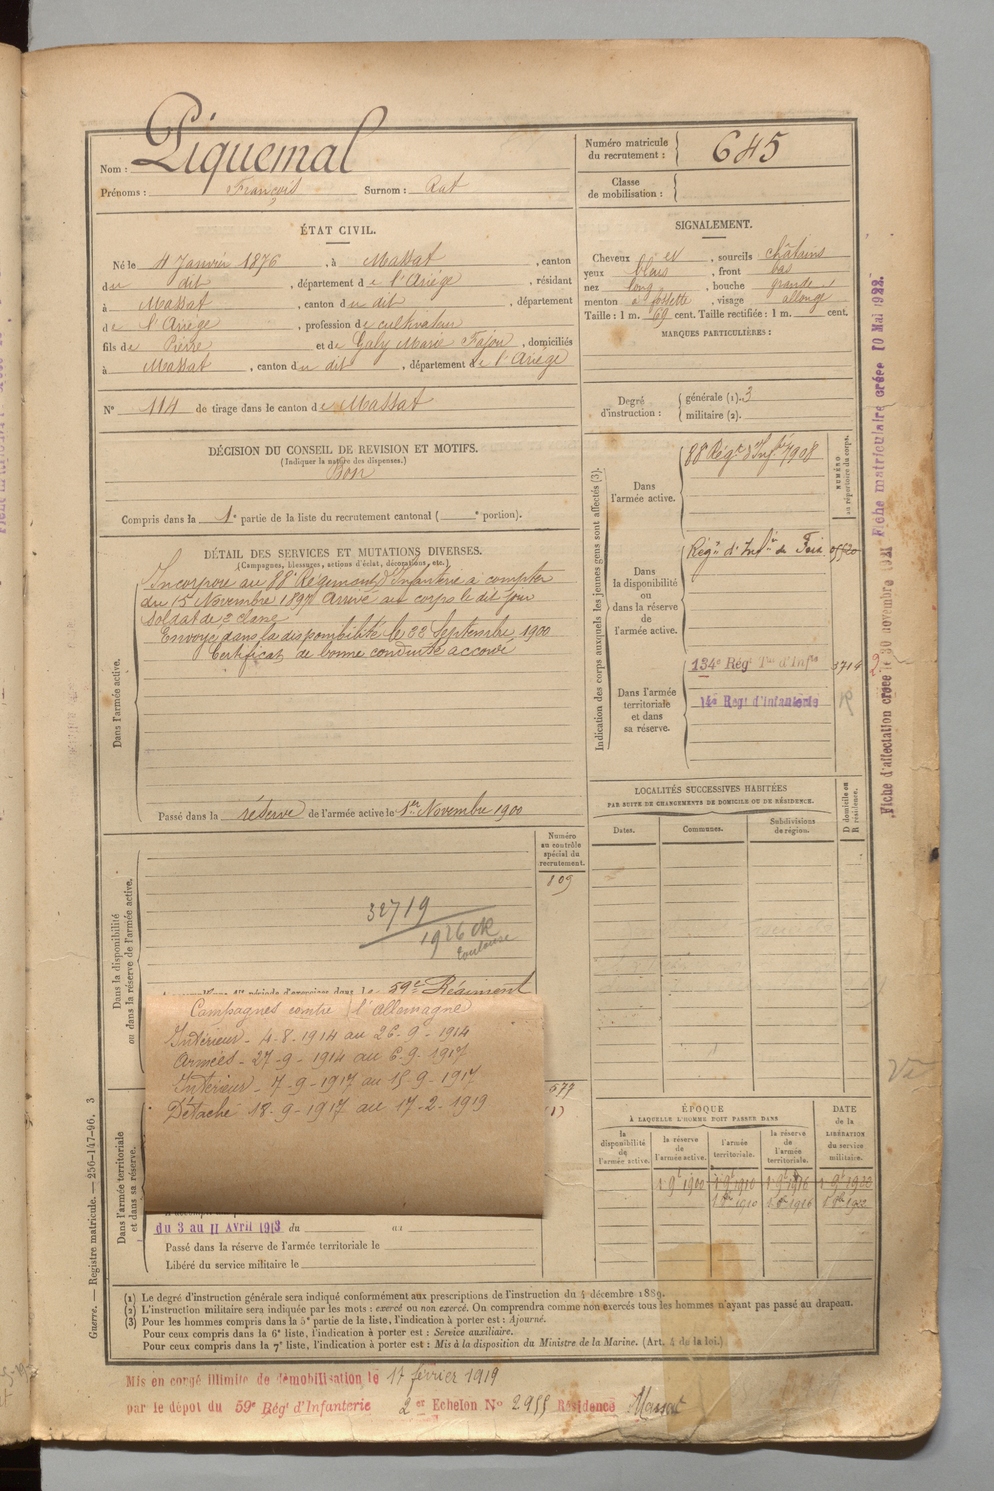 Nom : Piquemal
Prénoms : François Surnom : Rat
Numéro matricule du recrutement : 645
Classe de mobilisation :
ÉTAT CIVIL.
Né le 4 Janvier 1876, à Massat, canton
du dit, département de l'Ariège, résidant
à Massat, canton du dit, département
de l'Ariège, profession de cultivateur
fils de Pierre et de Galy Marie Fajou, domiciliés
à Massat, canton du dit, département de l'Ariège
N° 114 de tirage dans le canton de Massat
SIGNALEMENT.
Cheveux et, sourcils châtains
yeux bleus, front bas
nez long, bouche grande
menton à fossette, visage allongé
Taille : 1 m. 69 cent. Taille rectifiée : 1 m. cent.
MARQUES PARTICULIÈRES :
Degré d'instruction : générale (1). 3
militaire (2).
DÉCISION DU CONSEIL DE REVISION ET MOTIFS.
(Indiquer la nature des dispenses.)
Bon
Compris dans la 1e partie de la liste du recrutement cantonal ( e portion).
DÉTAIL DES SERVICES ET MUTATIONS DIVERSES.
(Campagnes, blessures, actions d'éclat, décorations, etc.)
Dans l'armée active.
Incorporé au 88e Régiment d'Infanterie à compter
du 15 Novembre 1897 Arrivé au corps le dit jour
Soldat de 2e classe
Envoyé dans la disponibilité le 22 Septembre 1900
Certificat de bonne conduite accordé
Passé dans la réserve de l'armée active le 1er Novembre 1900
Indication des corps auxquels les jeunes gens sont affectés (3).
NUMÉRO au répertoire du corps.
Dans l'armée active.
88 Régt d'Infie 7908
Dans la disponibilité ou dans la réserve de l'armée active.
Régt d'Infie de Foix 05620
Dans l'armée territoriale et dans sa réserve.
134e Régt Tal d'Infie 3714
14e Régt d'Infanterie
R
LOCALITÉS SUCCESSIVES HABITÉES
PAR SUITE DE CHANGEMENTS DE DOMICILE OU DE RÉSIDENCE.
Dates. Communes. Subdivisions de région. D domicile ou R résidence.
Dans la disponibilité ou dans la réserve de l'armée active.
Numéro au contrôle spécial du recrutement.
809
32719
1926 CR
Toulouse
période d'exercices dans le 59e Régiment
Campagnes contre l'Allemagne
Intérieur - 4-8-1914 au 26-9-1914
Armées - 27-9-1914 au 6-9-1917
Intérieur - 7-9-1917 au 15-9-1917
Détaché 18-9-1917 au 17-2-1919
Dans l'armée territoriale et dans sa réserve.
du 3 au 11 Avril 1913 du au
Passé dans la réserve de l'armée territoriale le
Libéré du service militaire le
ÉPOQUE
À LAQUELLE L'HOMME DOIT PASSER DANS
la disponibilité de l'armée active.
la réserve de l'armée active.
l'armée territoriale.
la réserve de l'armée territoriale.
DATE de la LIBÉRATION du service militaire.
1 9e 1900 1 9e 1910 1 9e 1916 1 9e 1922
(1) Le degré d'instruction générale sera indiqué conformément aux prescriptions de l'instruction du 4 décembre 1889.
(2) L'instruction militaire sera indiquée par les mots : exercé ou non exercé. On comprendra comme non exercés tous les hommes n'ayant pas passé au drapeau.
(3) Pour les hommes compris dans la 5e partie de la liste, l'indication à porter est : Ajourné.
Pour ceux compris dans la 6e liste, l'indication à porter est : Service auxiliaire.
Pour ceux compris dans la 7e liste, l'indication à porter est : Mis à la disposition du Ministre de la Marine. (Art. 4 de la loi.)
Mis en congé illimité de démobilisation le 17 février 1919
par le dépôt du 59e Régt d'Infanterie 2er Echelon No 2955 Résidence Massat
Guerre. — Registre matricule. — 256-147-96. 3
Fiche d'affectation créée le 30 novembre 1921
Fiche matriculaire créée 10 Mai 1922.